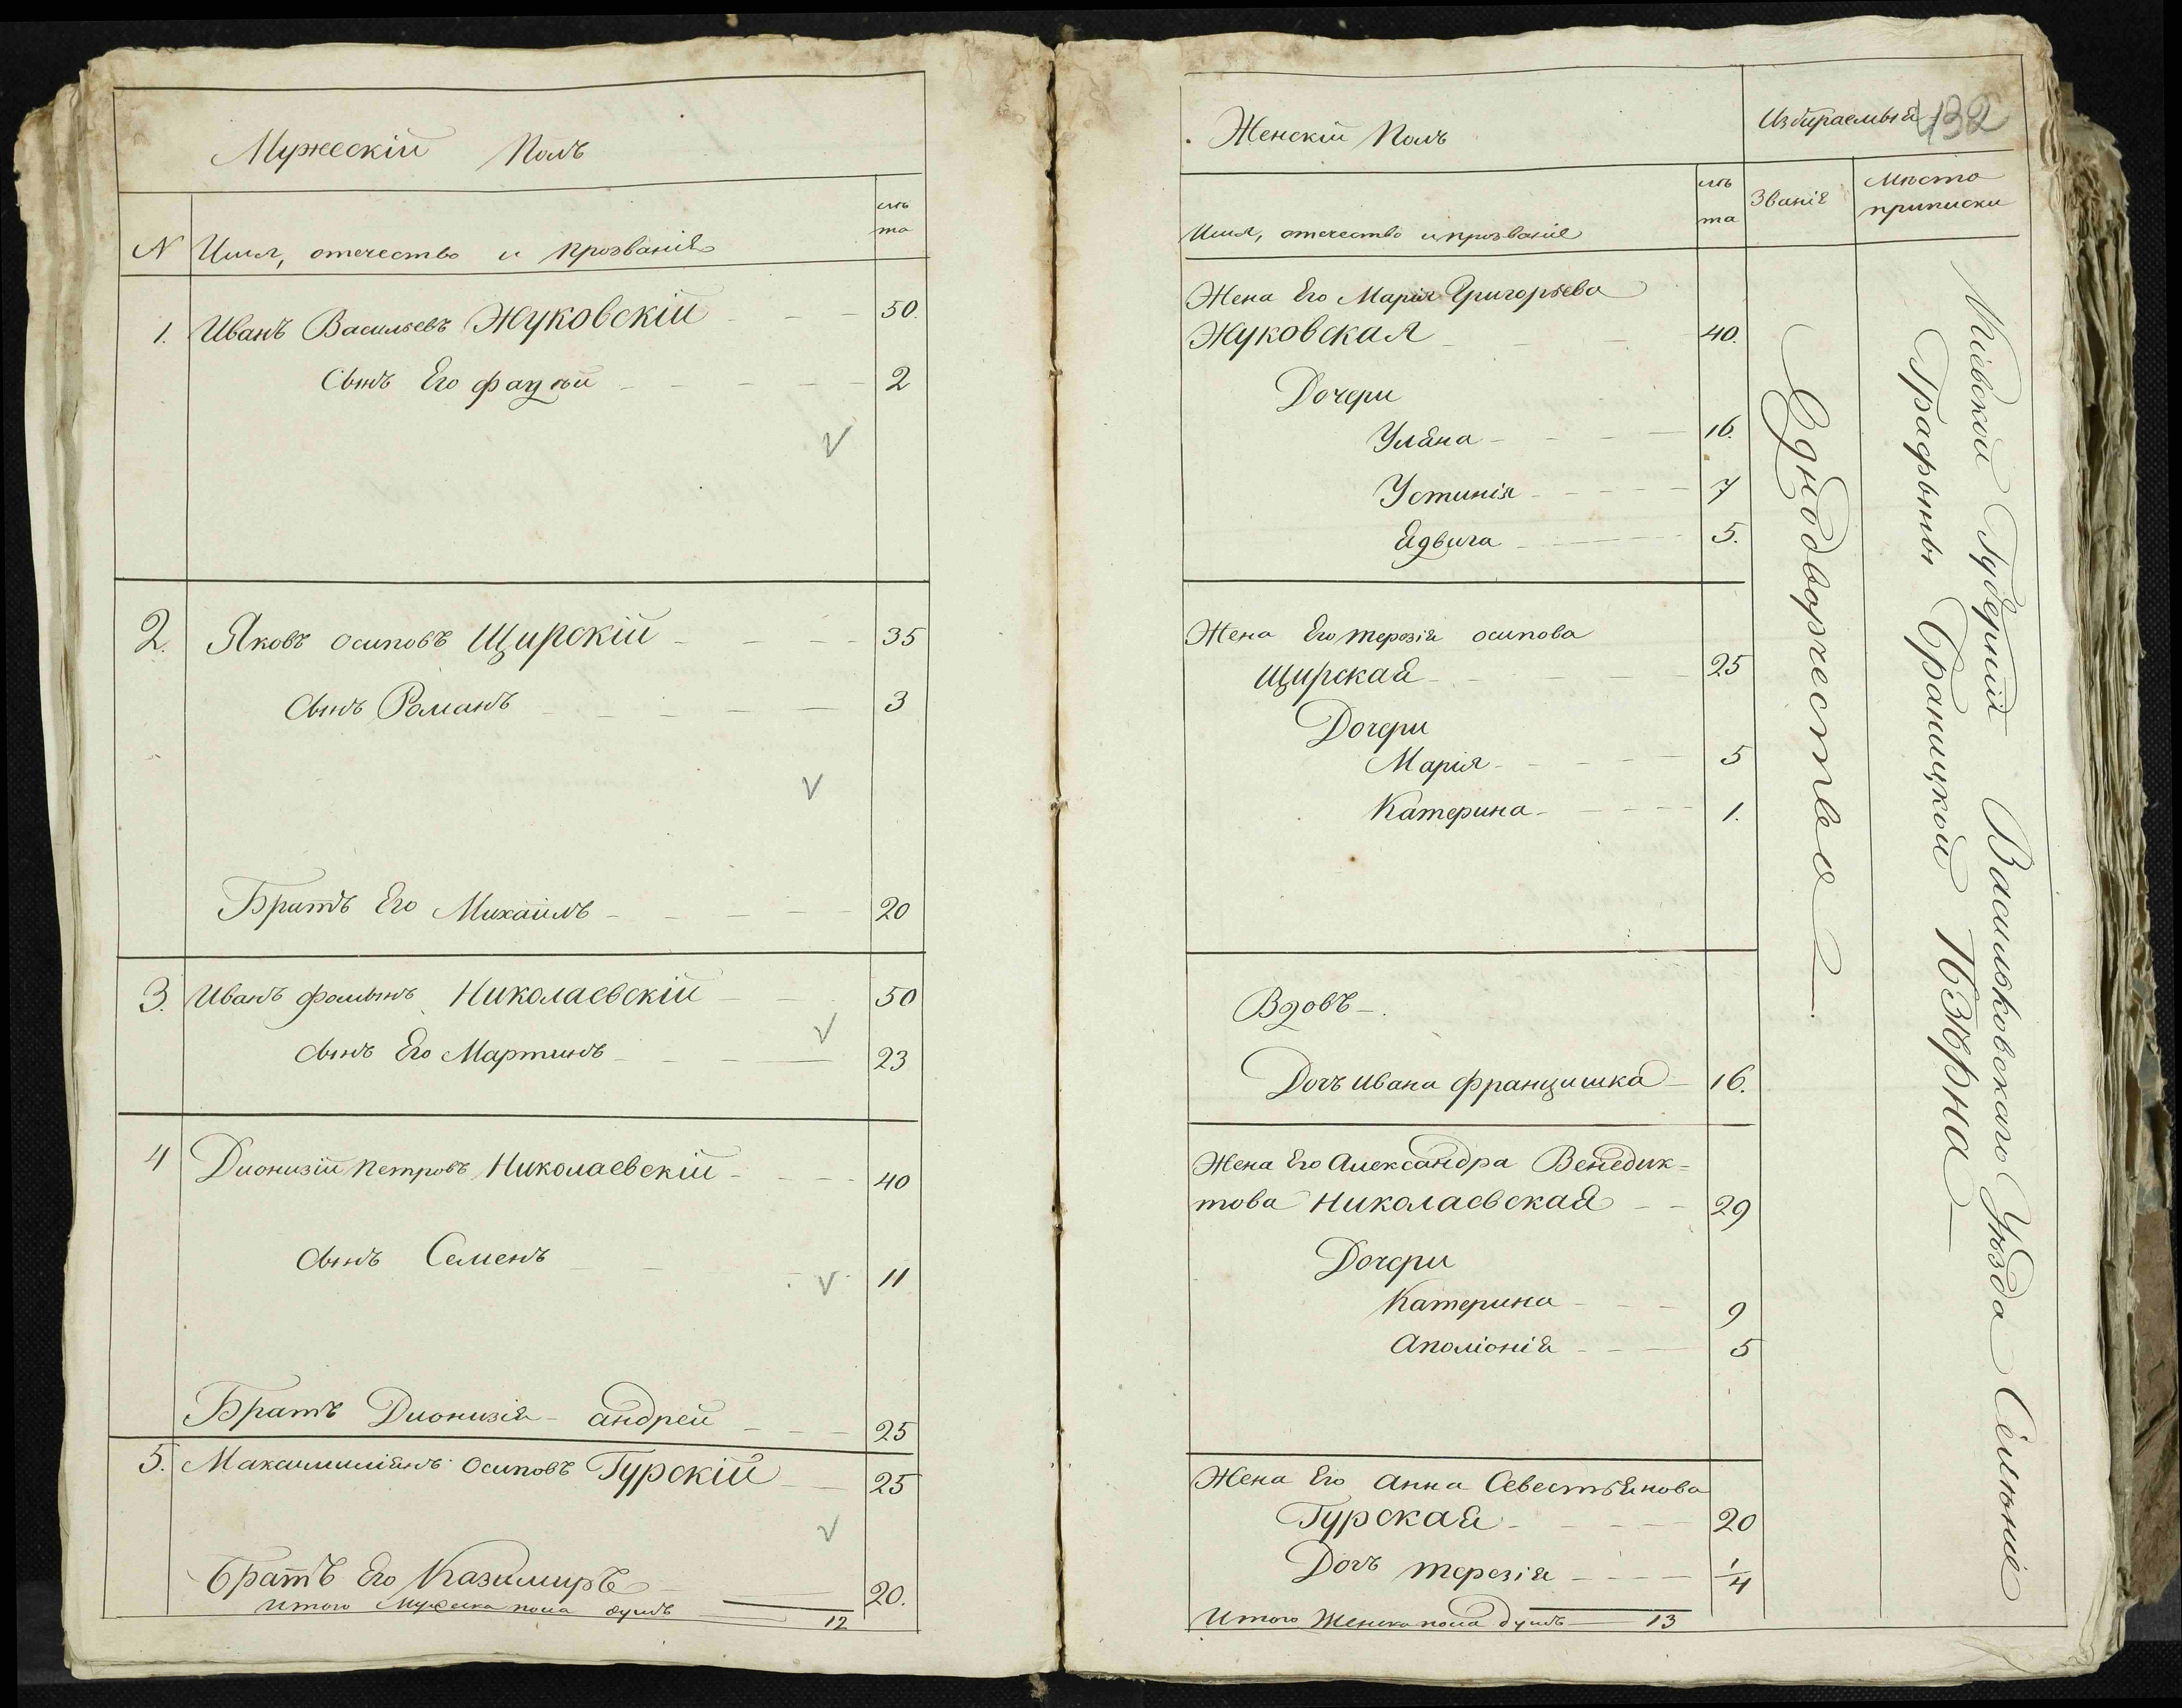 Мужескій Полъ
N Имя, отечество и прозваніе лѣта
1. Иванъ Васильевъ Жуковскій 50.
Сынъ Его 2
2. Яковъ осиповъ Щирскій 35
Сынъ Романъ 3
Братъ Его Михаилъ 20
3. Иванъ фоминъ Николаевскій 50
Сынъ Его Мартинъ 23
4 Дионизій петровъ Николаевскій 40
Сынъ Семенъ 11
Братъ Дионизія андрей 25
5. Максимиліянъ Осиповъ Турскій 25
братъ Его Казимиръ 20.
Итого Мужеска пола душъ 12
Женскій Полъ
Имя, отечество и прозваніе лѣта
Жена Его Марія Григорьева
Жуковская 40.
Дочери
Уляна 16.
Устинія 7
Ядвига 5.
Жена Его терезія осипова
Щирская 25
Дочери
Марія 5
Катерина 1.
Вдовъ
Дочъ ивана францишка 16.
Жена Его Александра Венедик=
това Николаевская 29
Дочери
Катерина 9
Аполіонія 5
Жена Его Анна Севестьянова
Турская 20
Дочъ терезія 1/4
Итого Женска пола душъ 13
Избираемыя 132
Званія
Мѣсто
приписки
Однодворчество
Кіевской Губерніи Васильковского Уѣзда Селюніе
Графыни Браницкой